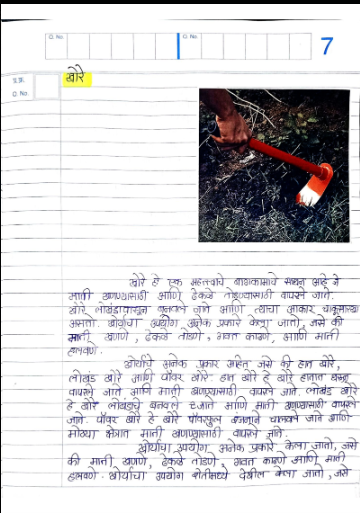 Q. No.
Q. No.
7
प्र.क्र.
Q. No.
खोरे
खोरे हे एक महत्वाचे बागकामाचे साधन आहे जे
माती खणण्यासाठी आणि ढेकळे तोडण्यासाठी वापरले जाते.
खोरे लोखंडापासून बनवले जाते आणि त्याचा आकार
असतो. खोर्याचा उपयोग अनेक प्रकारे केला जातो, जसे की
माती खणणे, ढेकळे तोडणे, गवत काढणे, आणि माती
हलवणे.
खोर्याचे अनेक प्रकार आहेत जसे की हात खोरे,
लोखंड खोरे आणि पॉवर खोरे. हात खोरे हे खोरे हातात धरून
वापरले जाते आणि माती खणण्यासाठी वापरले जाते. लोखंड खोरे
हे खोरे लोखंडाचे बनवले जाते आणि माती खणण्यासाठी वापरले
जाते. पॉवर खोरे हे खोरे चालवले जाते आणि
मोठ्या क्षेत्रात माती खणण्यासाठी वापरले जाते.
खोर्याचा उपयोग अनेक प्रकारे केला जातो, जसे
की माती खणणे, ढेकळे तोडणे, गवत काढणे आणि माती
हलवणे. खोर्याचा उपयोग शेतीमध्ये देखील केला जातो, जसे